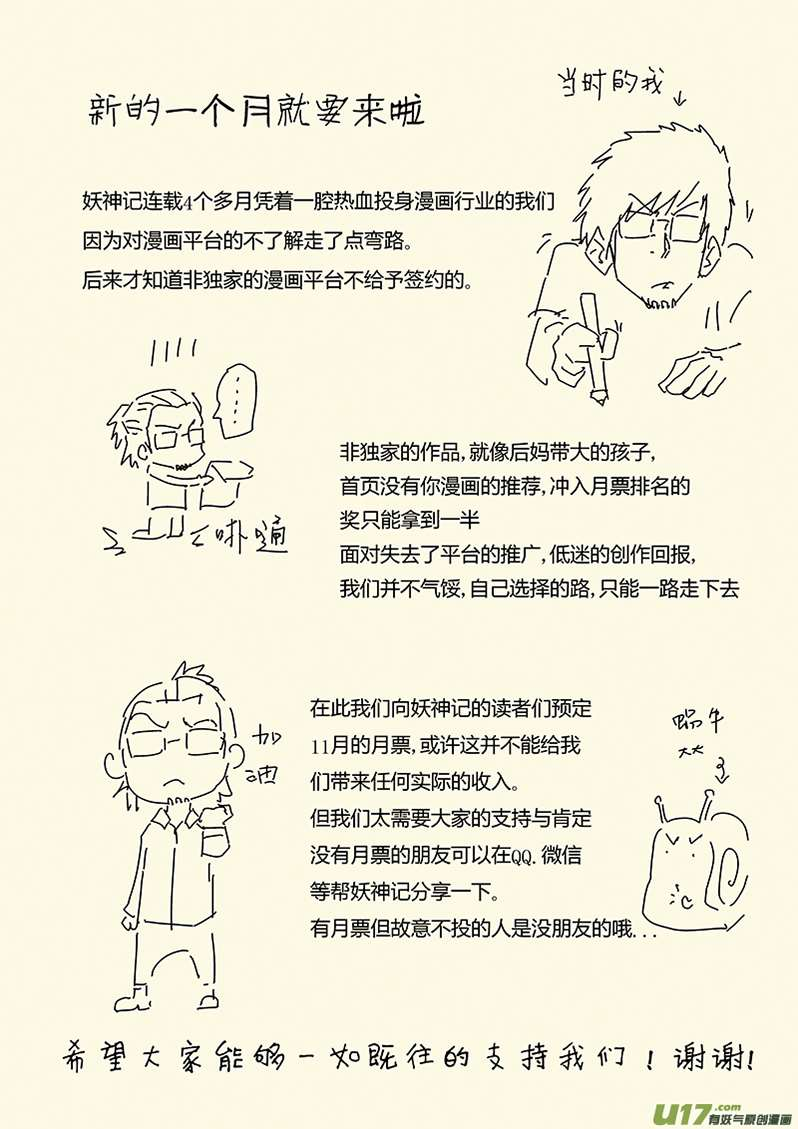 新的一个月就要来啦
当时的我
妖神记连载4个多月凭着一腔热血投身漫画行业的我们
因为对漫画平台的不了解走了点弯路。
后来才知道非独家的漫画平台不给予签约的。
......
卟通
非独家的作品,就像后妈带大的孩子,
首页没有你漫画的推荐,冲入月票排名的
奖只能拿到一半
面对失去了平台的推广,低迷的创作回报,
我们并不气馁,自己选择的路,只能一路走下去
加
油
在此我们向妖神记的读者们预定
11月的月票,或许这并不能给我
们带来任何实际的收入。
但我们太需要大家的支持与肯定
没有月票的朋友可以在QQ.微信
等帮妖神记分享一下。
有月票但故意不投的人是没朋友的哦...
蜗牛
希望大家能够一如既往的支持我们!谢谢!
U17.com
有妖气原创漫画